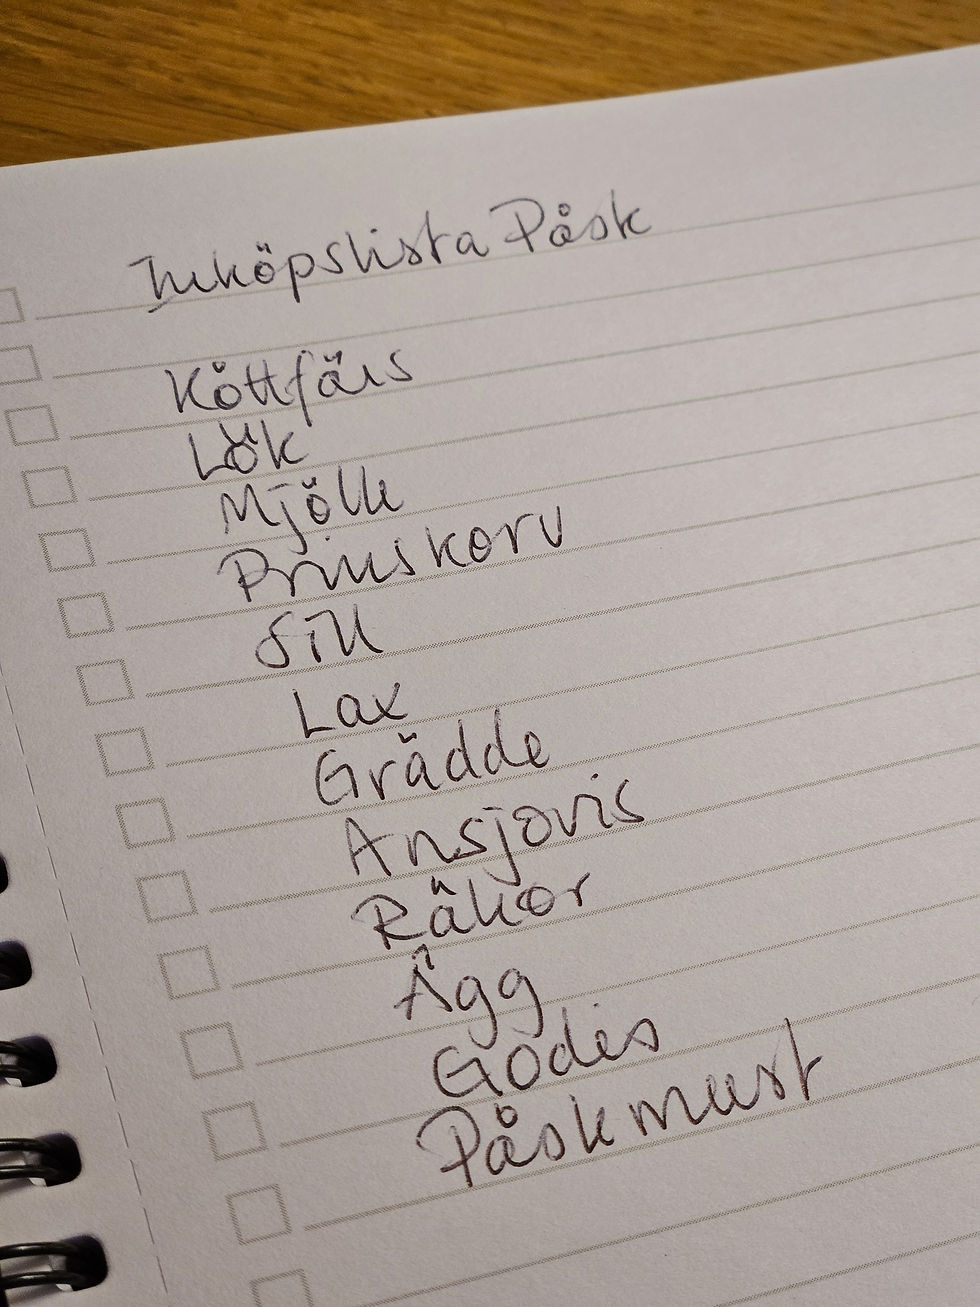 Inköpslista Påsk
Köttfärs
Lök
Mjölk
Prinskorv
Sill
Lax
Grädde
Ansjovis
Räkor
Ägg
Godis
Påskmust